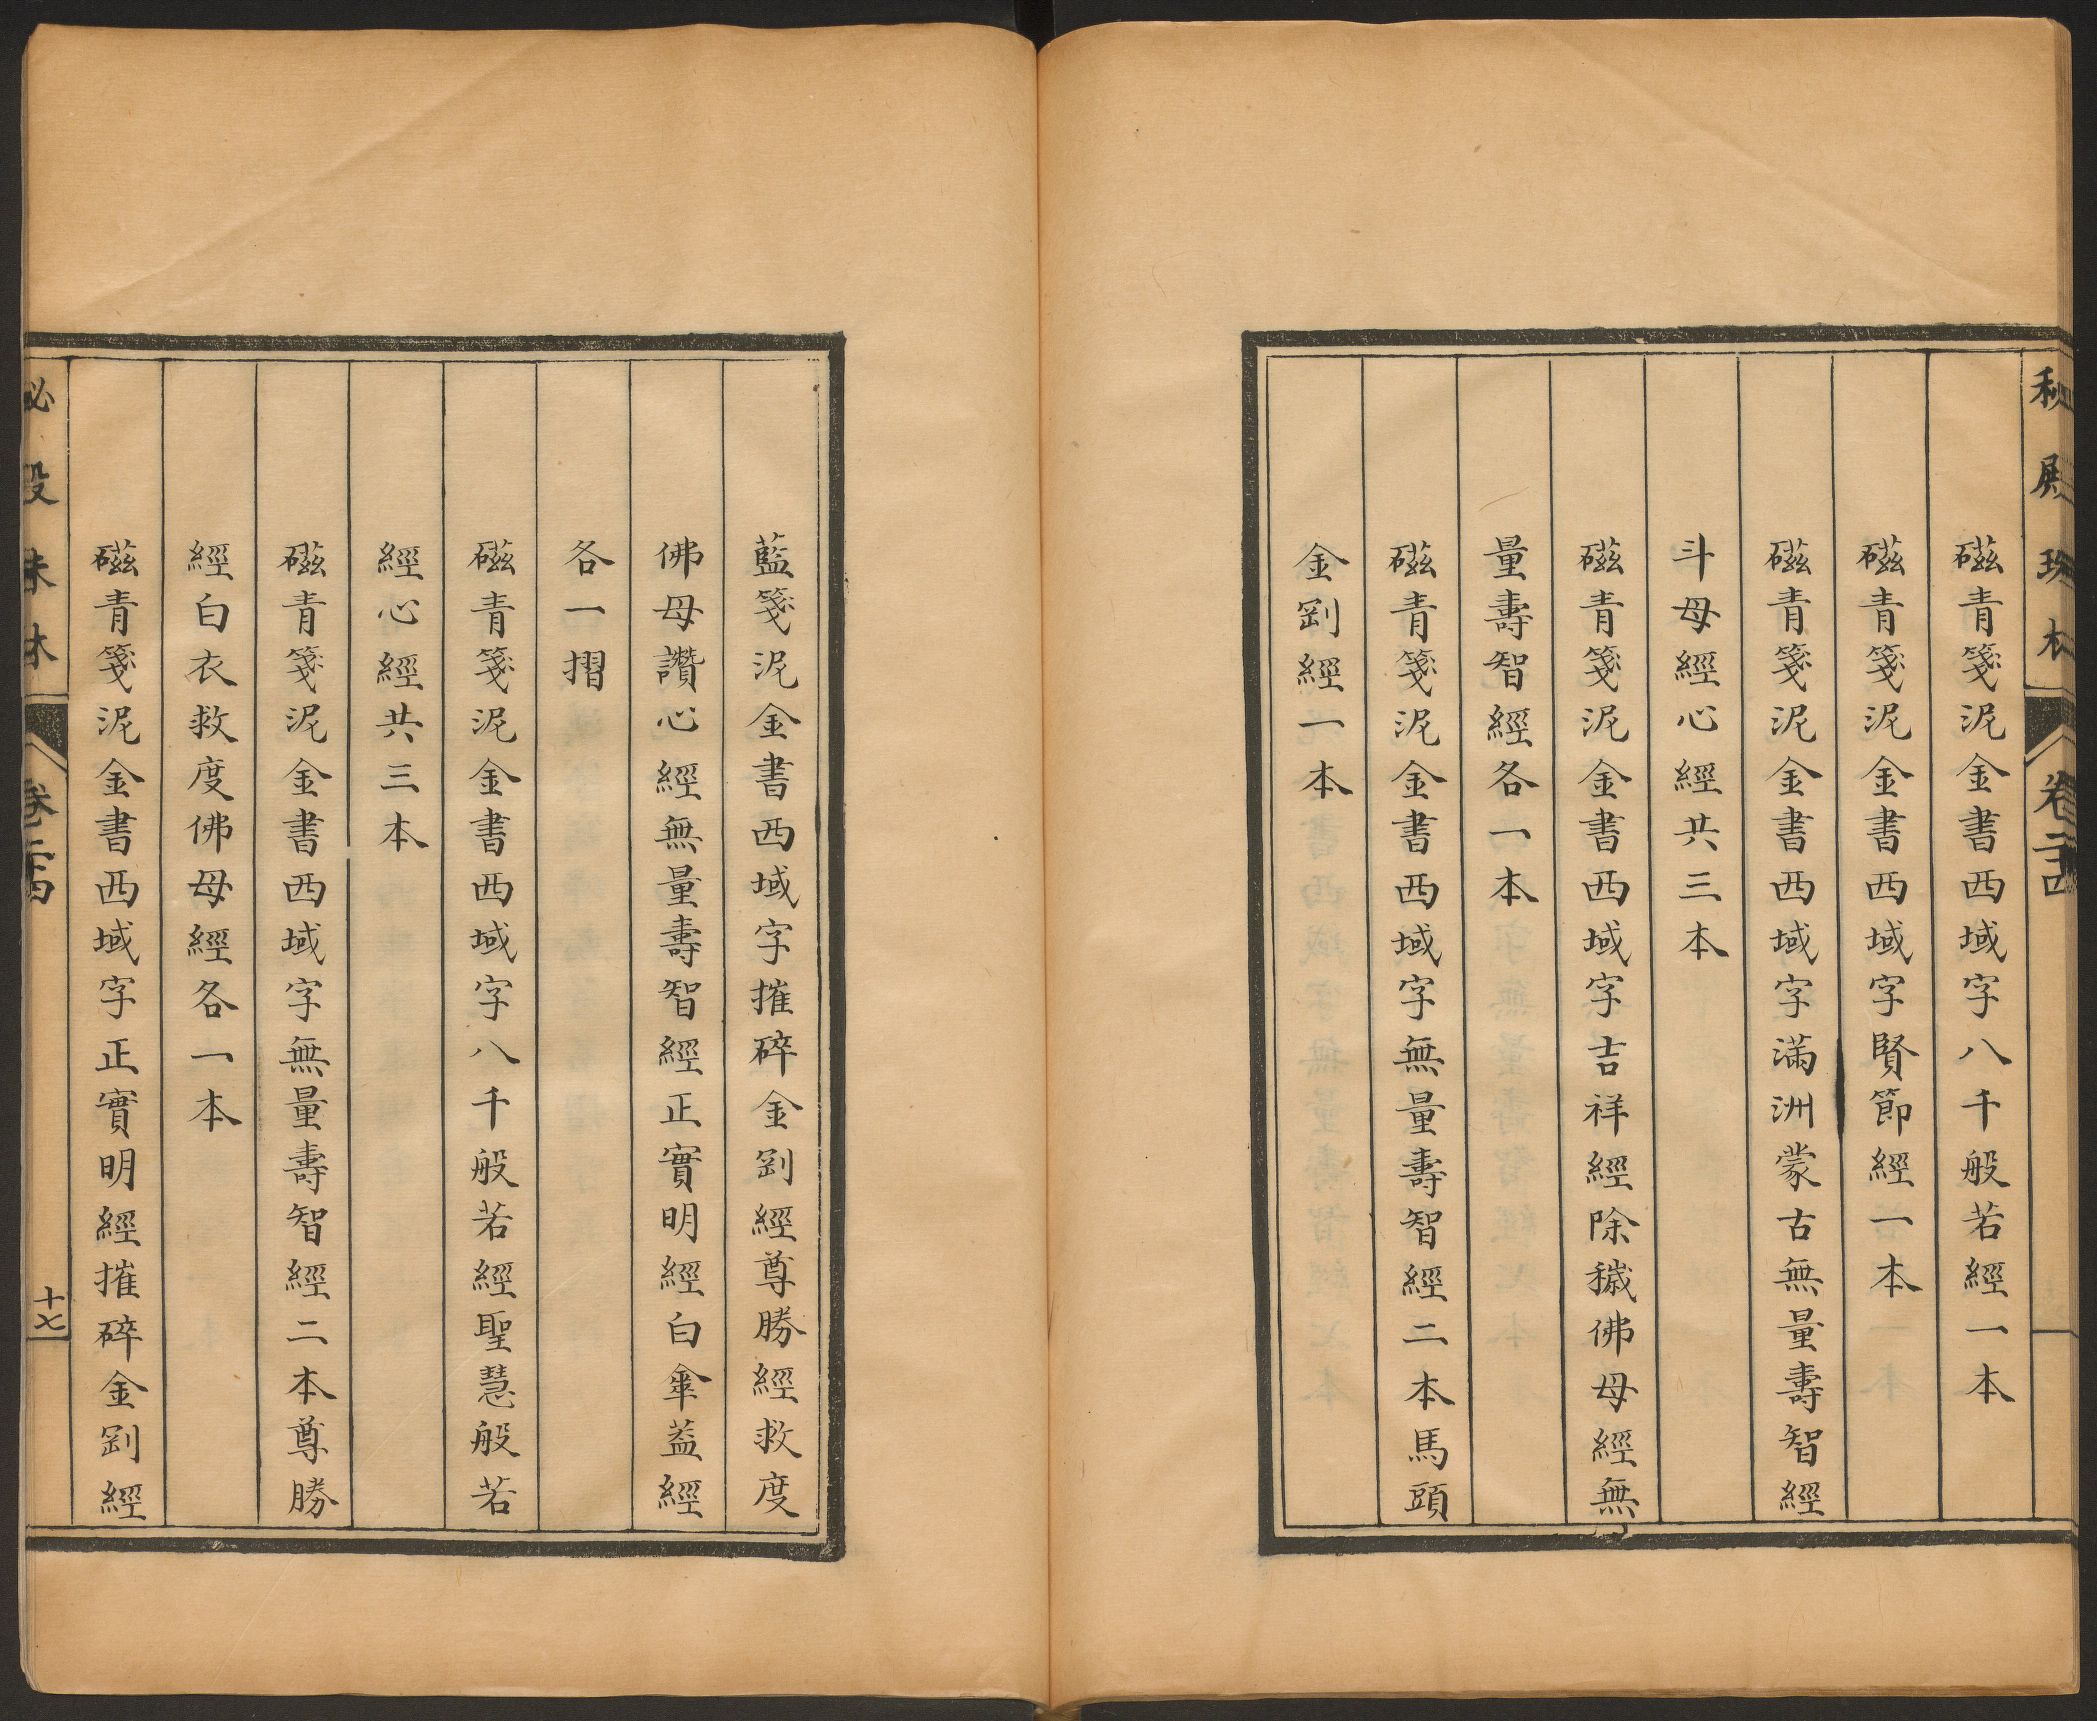 秘殿珠林 卷二十四
磁青箋泥金書西域字八千般若經一本
磁青箋泥金書西域字賢節經一本
磁青箋泥金書西域字滿洲蒙古無量壽智經
斗母經心經共三本
磁青箋泥金書西域字吉祥經除穢佛母經無
量壽智經各一本
磁青箋泥金書西域字無量壽智經二本馬頭
金剛經一本
藍箋泥金書西域字摧碎金剛經尊勝經救度
佛母讚心經無量壽智經正實明經白傘葢經
各一摺
磁青箋泥金書西域字八千般若經聖慧般若
經心經共三本
磁青箋泥金書西域字無量壽智經二本尊勝
經白衣救度佛母經各一本
磁青箋泥金書西域字正實明經摧碎金剛經
秘殿珠林 卷二十四 十七